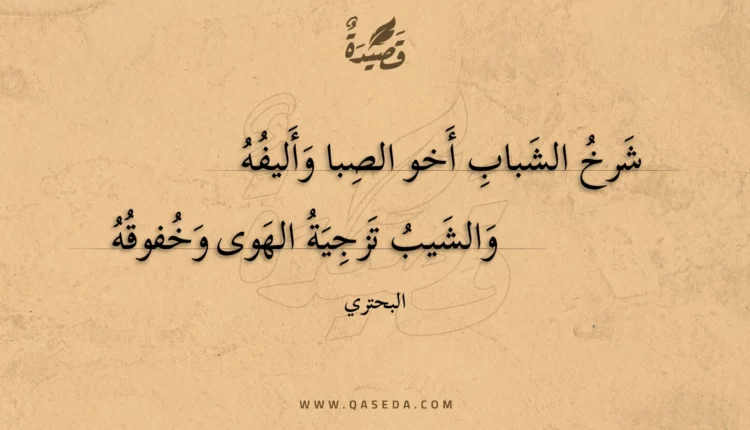 قَصِيدَةٌ
شَرخُ الشَبابِ أَخو الصِبا وَأَليفُهُ
وَالشَيبُ تَزجِيَةُ الهَوى وَخُفوقُهُ
البحتري
WWW.QASEDA.COM